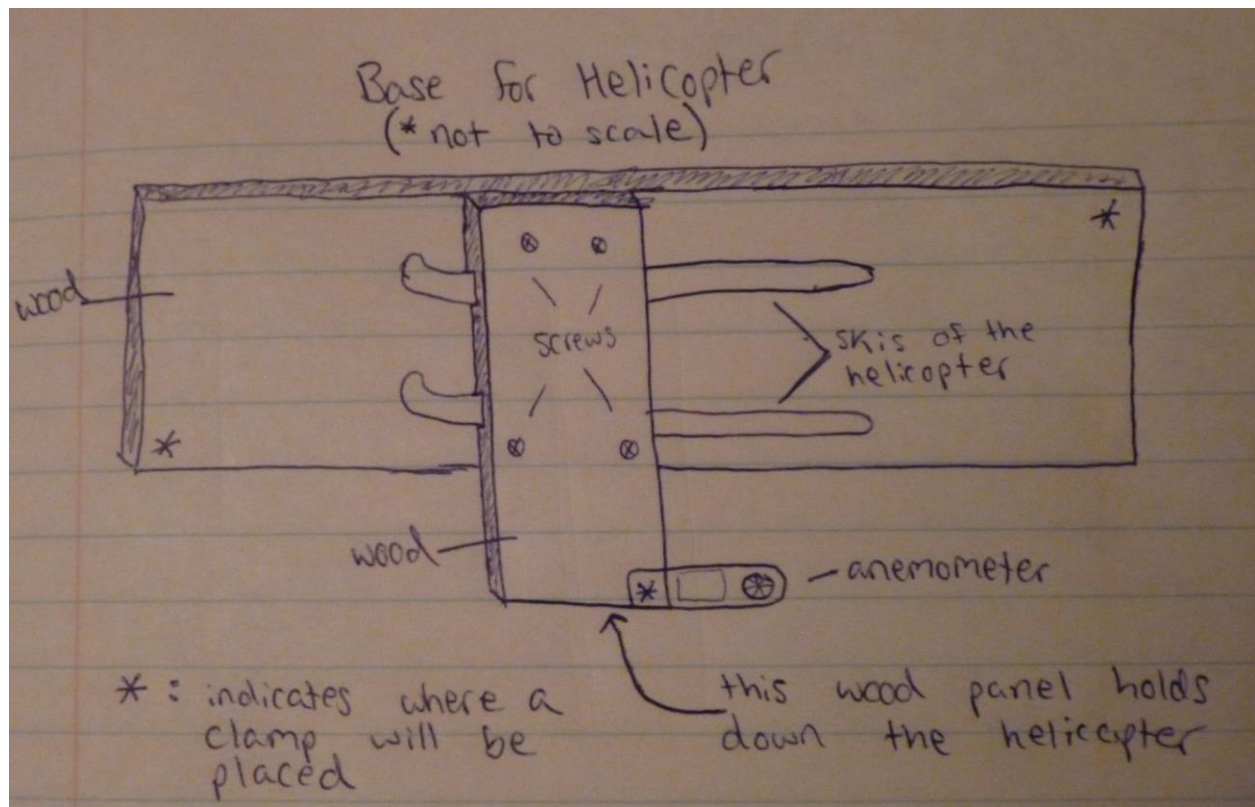 Base for Helicopter
(* not to scale)
*
wood
screws
skis of the
helicopter
*
wood
*
anemometer
* : indicates where a
clamp will be
placed
this wood panel holds
down the helicopter